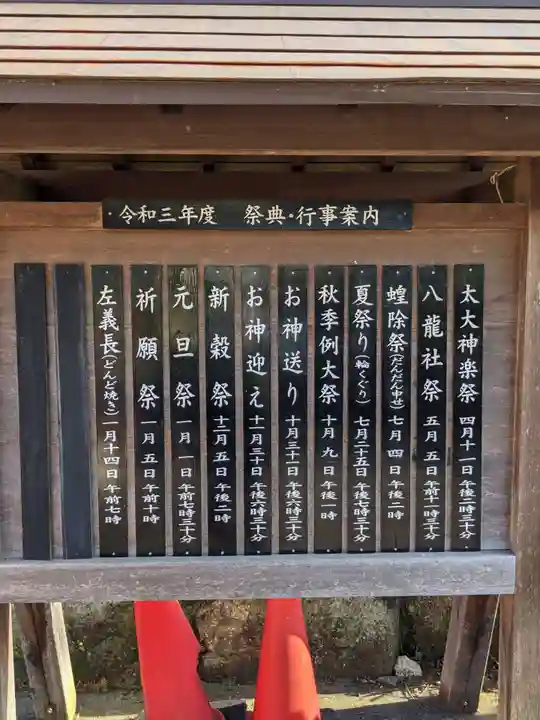 令和三年度　祭典・行事案内
太大神楽祭 四月十一日 午後二時三十分
八龍社祭 五月五日 午前十一時三十分
蝗除祭(だんだん申せ) 七月四日 午後二時
夏祭り(輪くぐり) 七月二十五日 午後七時三十分
秋季例大祭 十月九日 午後一時
お神送り 十月三十一日 午後六時三十分
お神迎え 十一月三十日 午後六時三十分
新穀祭 十二月五日 午後二時
元旦祭 一月一日 午前七時三十分
祈願祭 一月五日 午前十時
左義長(どんど焼き) 一月十四日 午前七時